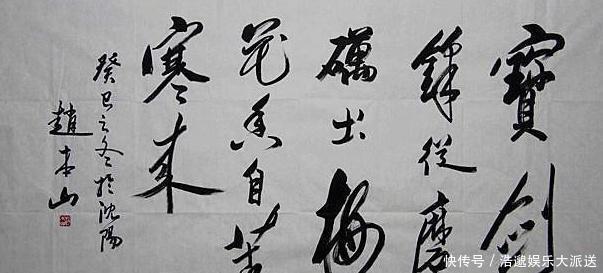 寶劍
鋒從磨
礪出梅
花香自苦
寒来
癸巳之冬於沈陽
趙本山
快传号／浩邈娱乐大派送